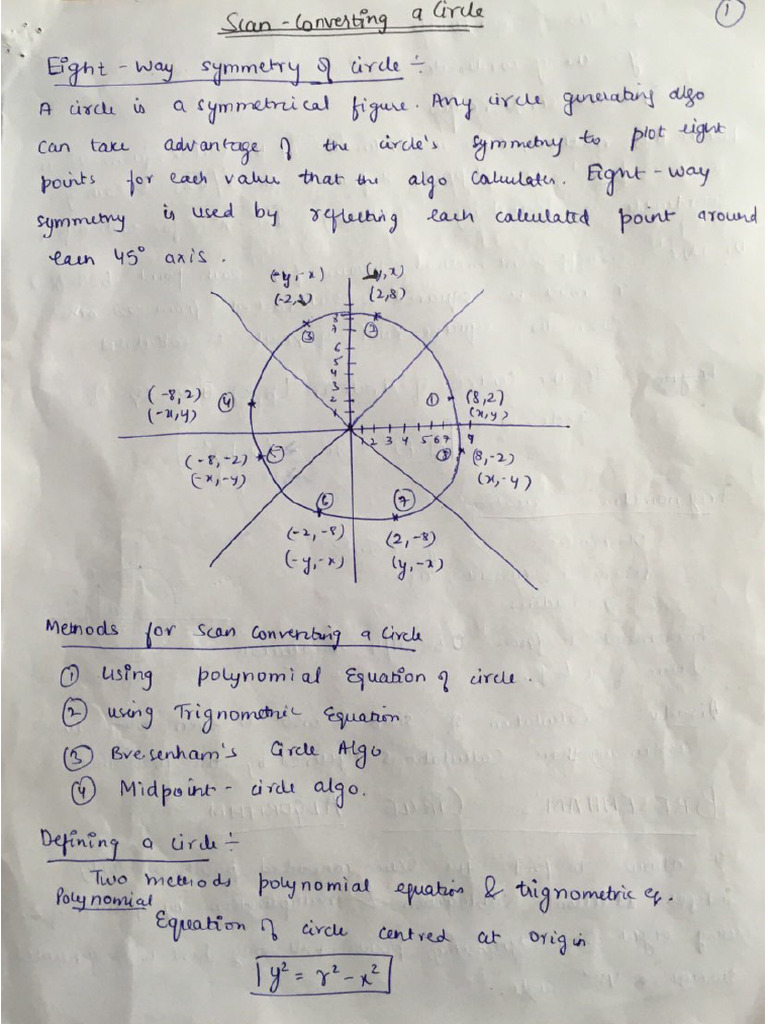 Scan-Converting a Circle
1
Eight-way symmetry of circle ÷
A circle is a symmetrical figure. Any circle generating algo
can take advantage of the circle's symmetry to plot eight
points for each value that the algo calculates. Eight-way
symmetry is used by reflecting each calculated point around
each 45° axis.
(-y,-x) (y,x)
(-2,8) (2,8)
8
3 7 2
6
5
4
(-8,2) 3 (8,2)
(-x,y) 4 2 1 (x,y)
1
1 2 3 4 5 6 7 9
(-8,-2) 5 8 (8,-2)
(-x,-y) (x,-y)
6 7
(-2,-8) (2,-8)
(-y,-x) (y,-x)
Methods for scan converting a circle
1 Using polynomial Equation of circle.
2 using Trignometric Equation
3 Bresenham's Circle Algo
4 Midpoint-circle algo.
Defining a circle ÷
Two methods polynomial equation & trignometric eq.
Polynomial
Equation of circle centred at origin
y² = r² - x²